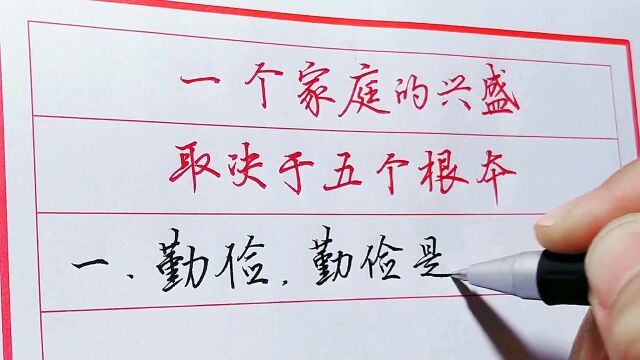 一个家庭的兴盛
取决于五个根本
一、勤俭，勤俭是